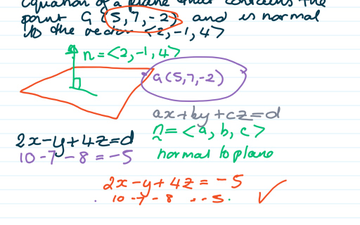 equation of a plane that contains the
point G (5,7,-2) and is normal
to the vector <2,-1,4>
n=<2,-1,4>
a(5,7,-2)
ax+by+cz=d
n=<a,b,c>
normal to plane
2x-y+4z=d
10-7-8=-5
2x-y+4z=-5
10-7-8=-5.